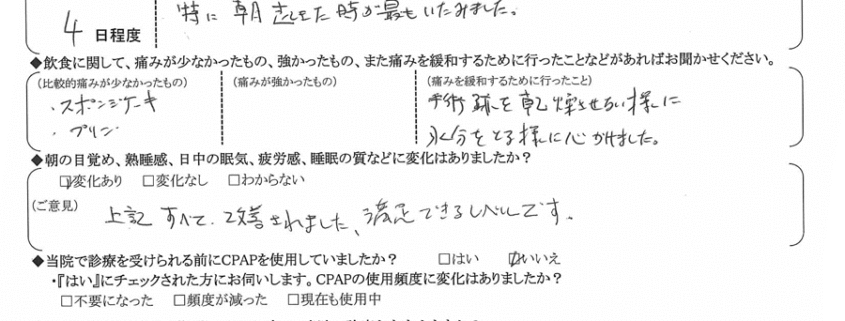 4 日程度
特に朝起きた時が最もいたみました。
◆飲食に関して、痛みが少なかったもの、強かったもの、また痛みを緩和するために行ったことなどがあればお聞かせください。
(比較的痛みが少なかったもの) (痛みが強かったもの) (痛みを緩和するために行ったこと)
・スポンジケーキ
・プリン
手術跡を乾燥させない様に
水分をとる様に心がけました。
◆朝の目覚め、熟睡感、日中の眠気、疲労感、睡眠の質などに変化はありましたか?
☑変化あり □変化なし □わからない
(ご意見)
上記すべて、改善されました、満足できるレベルです。
◆当院で診療を受けられる前にCPAPを使用していましたか? □はい ☑いいえ
・『はい』にチェックされた方にお伺いします。CPAPの使用頻度に変化はありましたか?
□不要になった □頻度が減った □現在も使用中